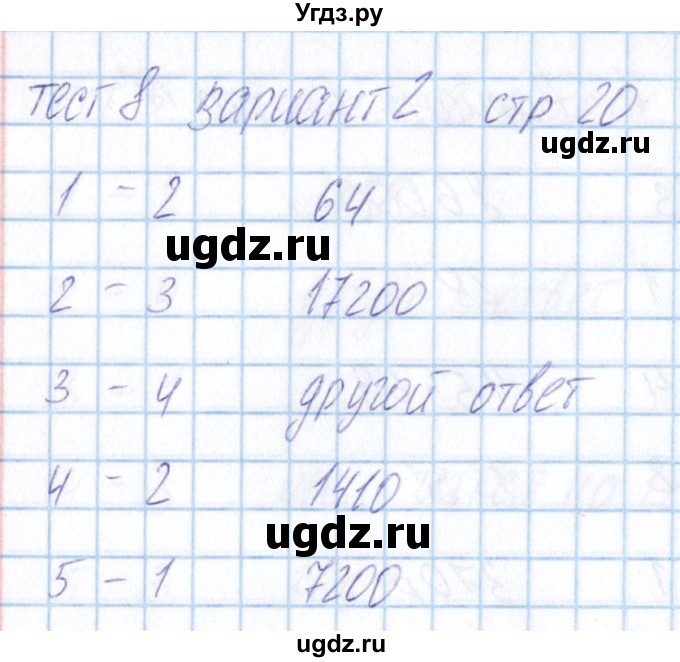 Угдз.ру
тест 8 вариант 2 стр 20
ugdz.ru
1 - 2 64
ugdz.ru
2 - 3 17200
3 - 4 другой ответ
4 - 2 1410
ugdz.ru
5 - 1 7200
ugdz.ru